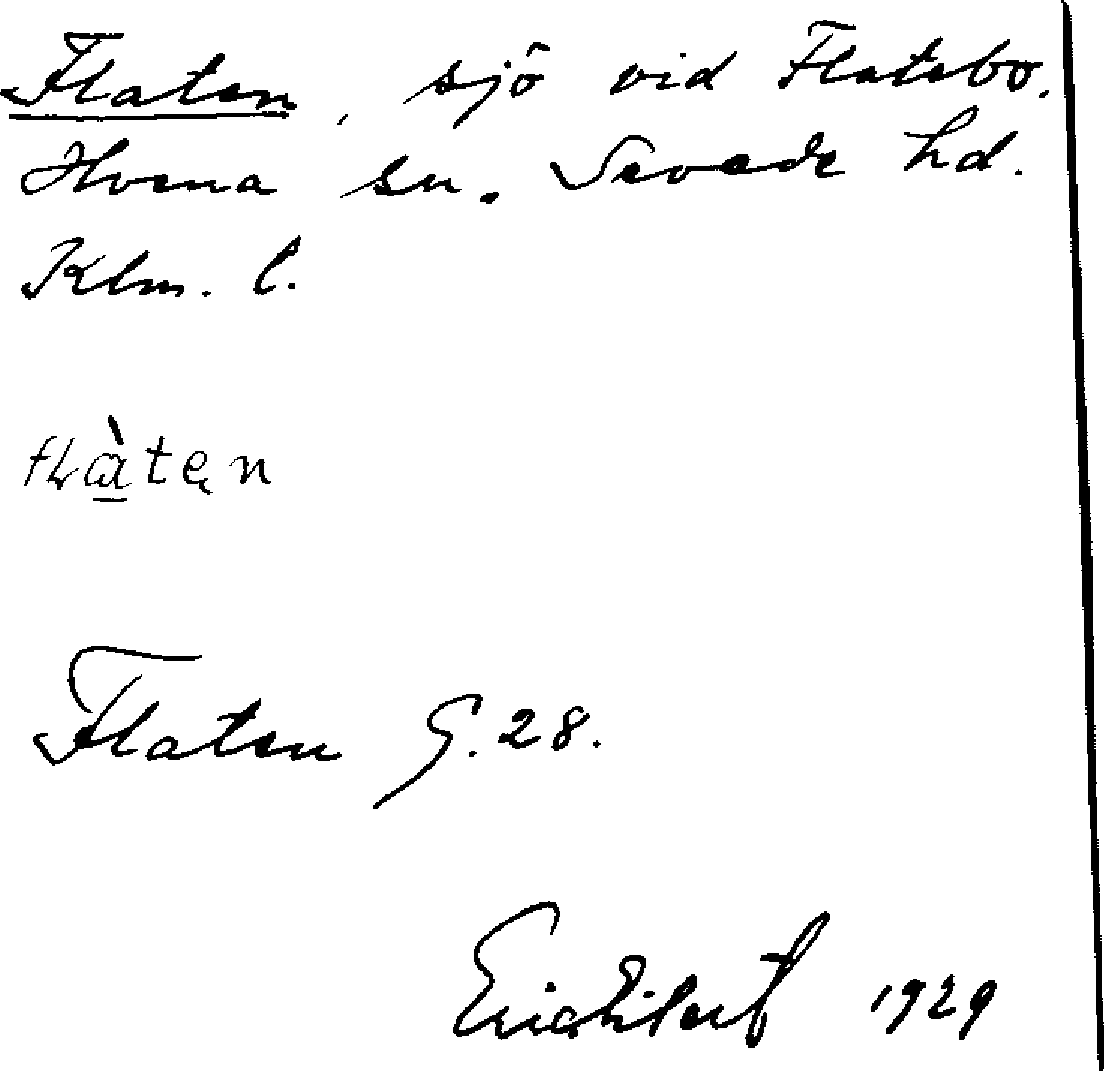 Flaten, sjö vid Flatebo.
Hvena sn. Sevede hd.
Klm. l.
flàten
Flaten G. 28.
1929